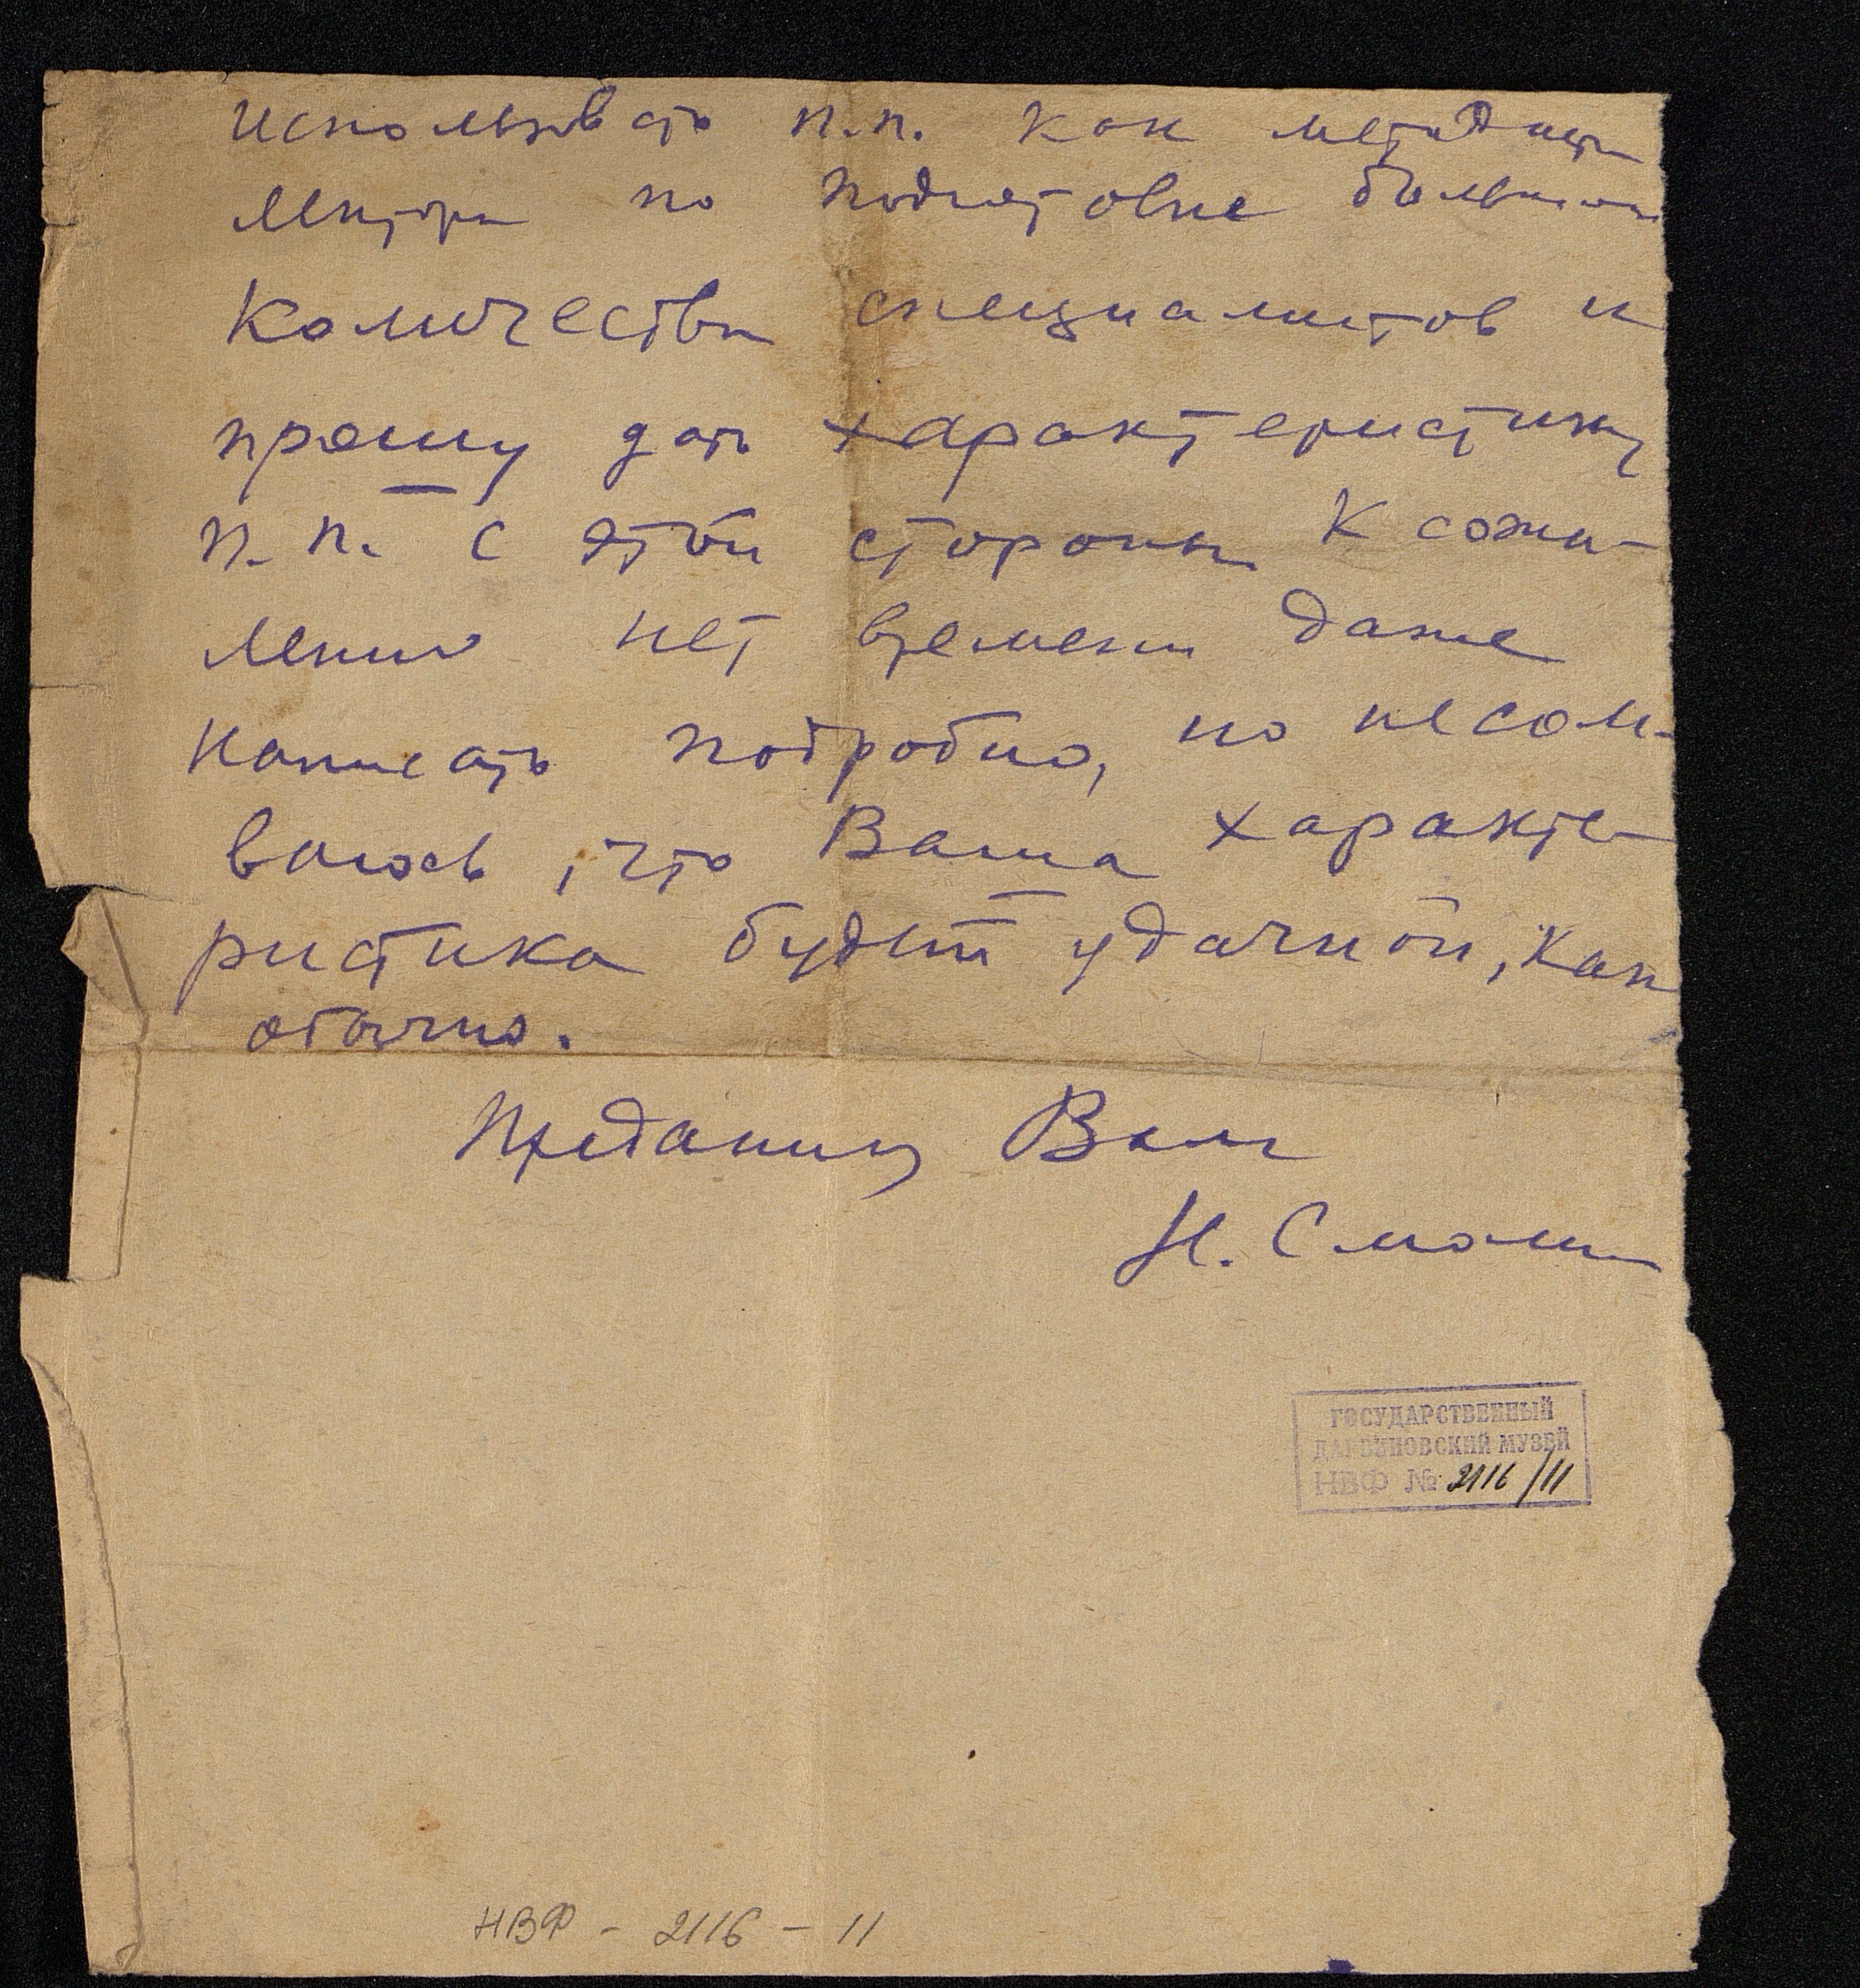 использовать п.п. как методиста
лектора по подготовке большого
количества специалистов и
прошу дать характеристику
п.п. с этой стороны К сожа-
лению нет времени даже
написать подробно, но несом-
ваюсь, что Ваша характе-
ристика будет удачной, как
обычно.
Преданный Вам
Н.
ГОСУДАРСТВЕННЫЙ
ДАРВИНОВСКИЙ МУЗЕЙ
НВФ № 2116/11
НВФ - 2116 - 11